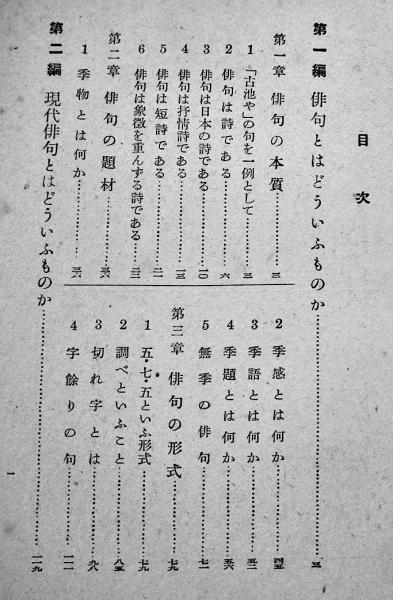 目次
第一編 俳句とはどういふものか……三
第一章 俳句の本質……三
1 「古池や」の句を一例として……三
2 俳句は詩である……六
3 俳句は日本の詩である……一〇
4 俳句は抒情詩である……一三
5 俳句は短詩である……二一
6 俳句は象徴を重んずる詩である……三二
第二章 俳句の題材……三六
1 季物とは何か……三六
2 季感とは何か……四五
3 季語とは何か……五二
4 季題とは何か……五六
5 無季の俳句……七一
第三章 俳句の形式……七九
1 五・七・五といふ形式……七九
2 調べといふこと……八五
3 切れ字とは……九八
4 字餘りの句……一一一
第二編 現代俳句とはどういふものか……一一九
一